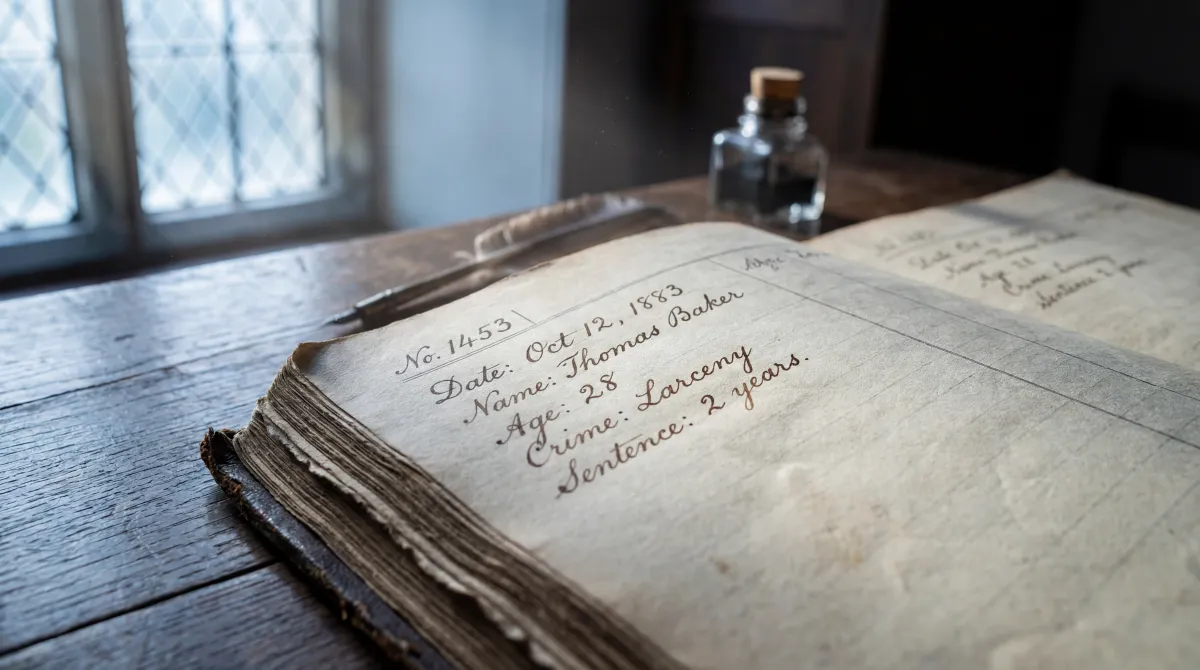 No. 1453
Date: Oct 12, 1883
Name: Thomas Baker
Age: 28
Crime: Larceny
Sentence: 2 years.
Crime: Larceny
Sentence: 2 year